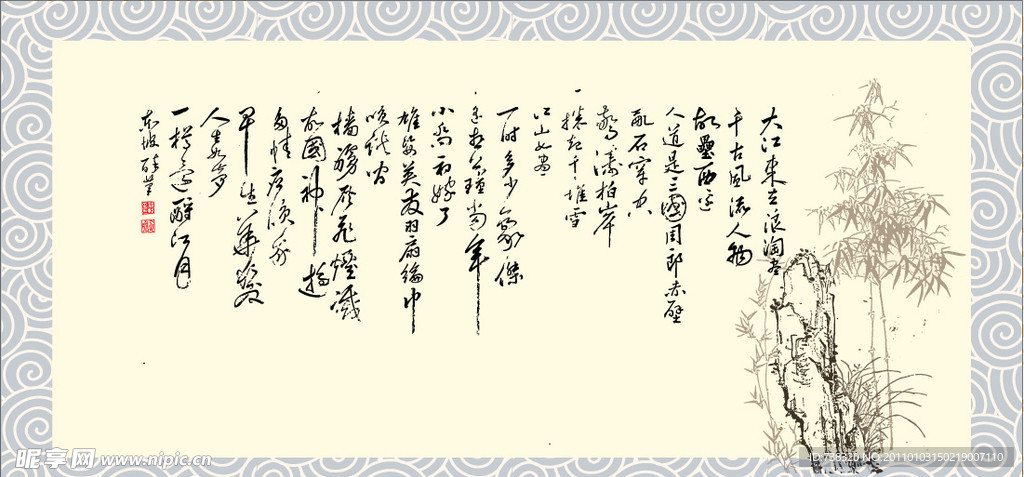 大江東去浪淘盡
千古風流人物
故壘西邊
人道是三國周郎赤壁
亂石穿空
驚濤拍岸
捲起千堆雪
江山如畫
一時多少豪傑
遙想公瑾當年
小喬初嫁了
雄姿英发羽扇綸巾
談笑間
檣艣灰飛煙滅
故國神遊
多情應笑我
早生華髮
人生如夢
一樽還酹江月
东坡醉筆
昵享网 www.nipic.cn
ID:738320 NO:20110103150219007110